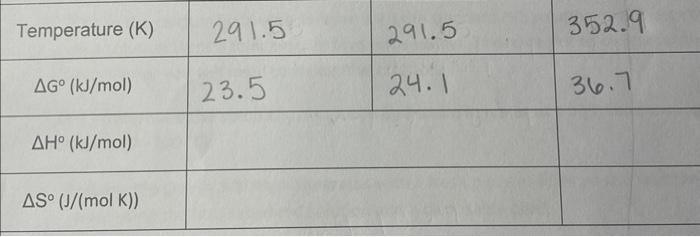 Temperature (K) 291.5 291.5 352.9
ΔG° (kJ/mol) 23.5 24.1 36.7
ΔH° (kJ/mol)
ΔS° (J/(mol K))